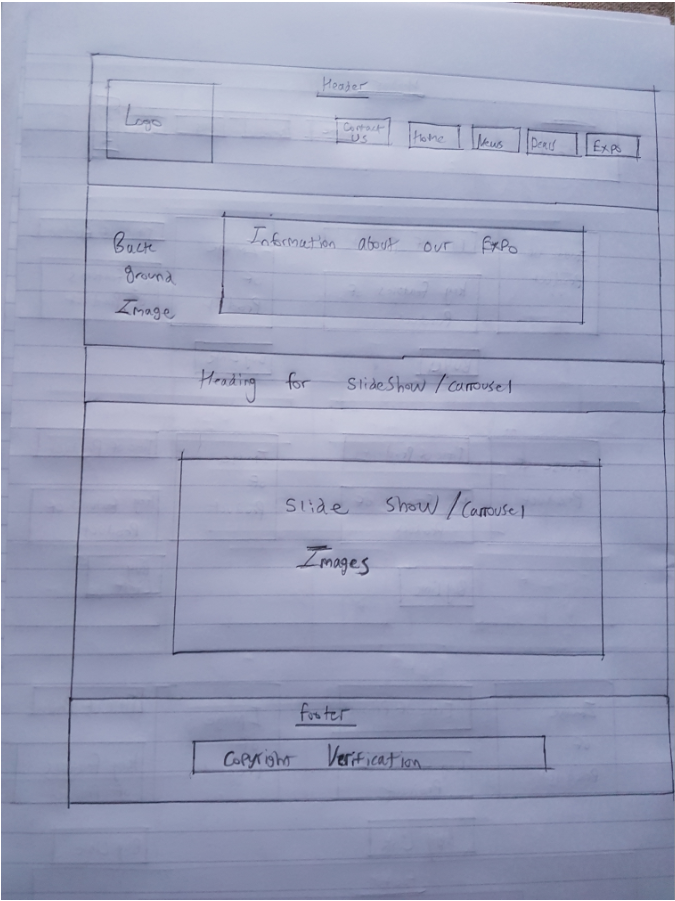 Header
Logo
Contact
Us
Home
News
Deals
Expo
Back
ground
Image
Information about our Expo
Heading for SlideShow / Carrousel
Slide Show / Carrousel
Images
Footer
Copyright Verification